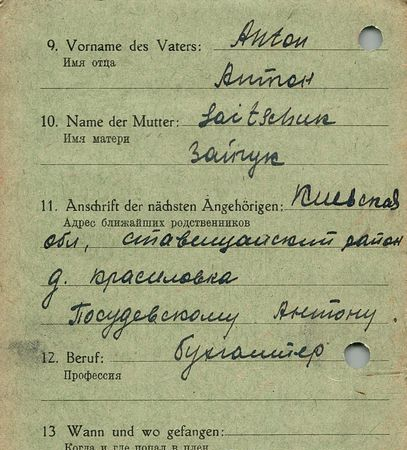 9. Vorname des Vaters: Anton
Имя отца
Антон
10. Name der Mutter: Saitschuk
Имя матери
Зайчук
11. Anschrift der nächsten Angehörigen: Киевская
Адрес ближайших родственников
обл, ставищанский район
д. красиловка
Посудевскому Антону.
12. Beruf: бухгалтер
Профессия
13 Wann und wo gefangen:
Когда и где попал в плен